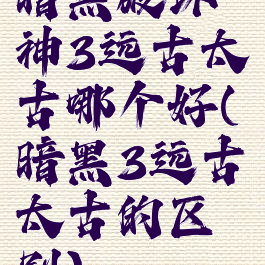 暗黑破坏
神3远古太
古哪个好(
暗黑3远古
太古的区
别)